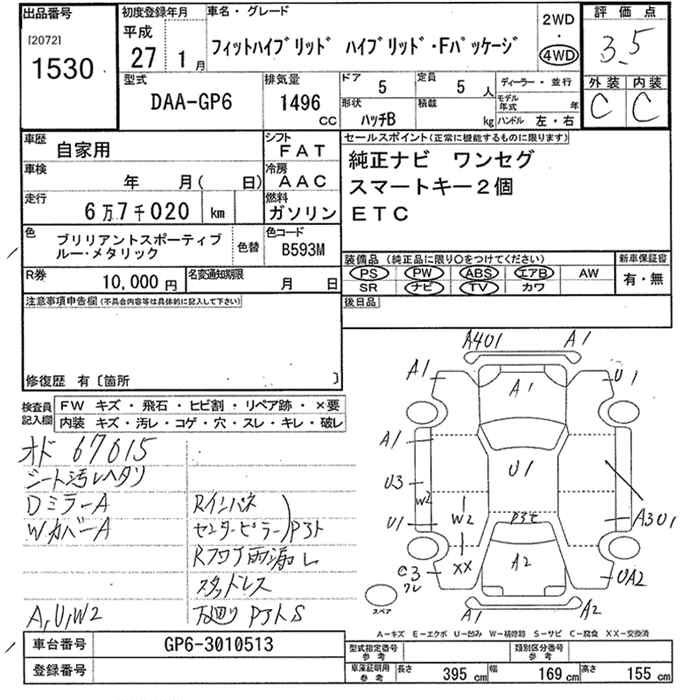 出品番号
[2072]
1530
初度登録年月
平成
27 1 月
車名・グレード
フィットハイブリッド ハイブリッド・Fパッケージ
2WD
4WD
評価点
3.5
外装 内装
C C
型式
DAA-GP6
排気量
1496
CC
ドア
5
定員
5 人
形状
ハッチB
積載
kg
ディーラー・並行
モデル年式 年
ハンドル 左・右
車歴
自家用
シフト
FAT
車検
年 月( 日)
冷房
AAC
走行
6万7千020 km
燃料
ガソリン
色
ブリリアントスポーティブ
ルー・メタリック
色替
色コード
B593M
R券
10,000 円
名変通知期限
月 日
セールスポイント(正常に機能するものに限ります)
純正ナビ ワンセグ
スマートキー2個
ETC
装備品(純正品に限り○をつけてください)
PS PW ABS エアB AW
SR ナビ TV カワ
新車保証書
有・無
後日品
注意事項申告欄(不具合内容等は具体的に記入して下さい)
修復歴 有〔箇所 〕
検査員
記入欄
FW キズ・飛石・ヒビ割・リペア跡・×要
内装 キズ・汚レ・コゲ・穴・スレ・キレ・破レ
オド 67015
シート汚レヘタリ
DミラーA
WカバーA
Rインパネ
センターピラー
PョT
Rフロア雨漏レ
スタッドレス
A,U,W2
A4U1
A1
A1
A1
U1
A1
U3
W2
U1
U1
W2
XX
A3U1
A2
C3
UA2
スペア
A1
A2
A-キズ E-エクボ U-凹み W-補修跡 S-サビ C-腐食 XX-交換済
車台番号
GP6-3010513
登録番号
型式指定番号
参考
類別区分番号
参考
車庫証明用
参考
長さ 395 cm 幅 169 cm 高さ 155 cm